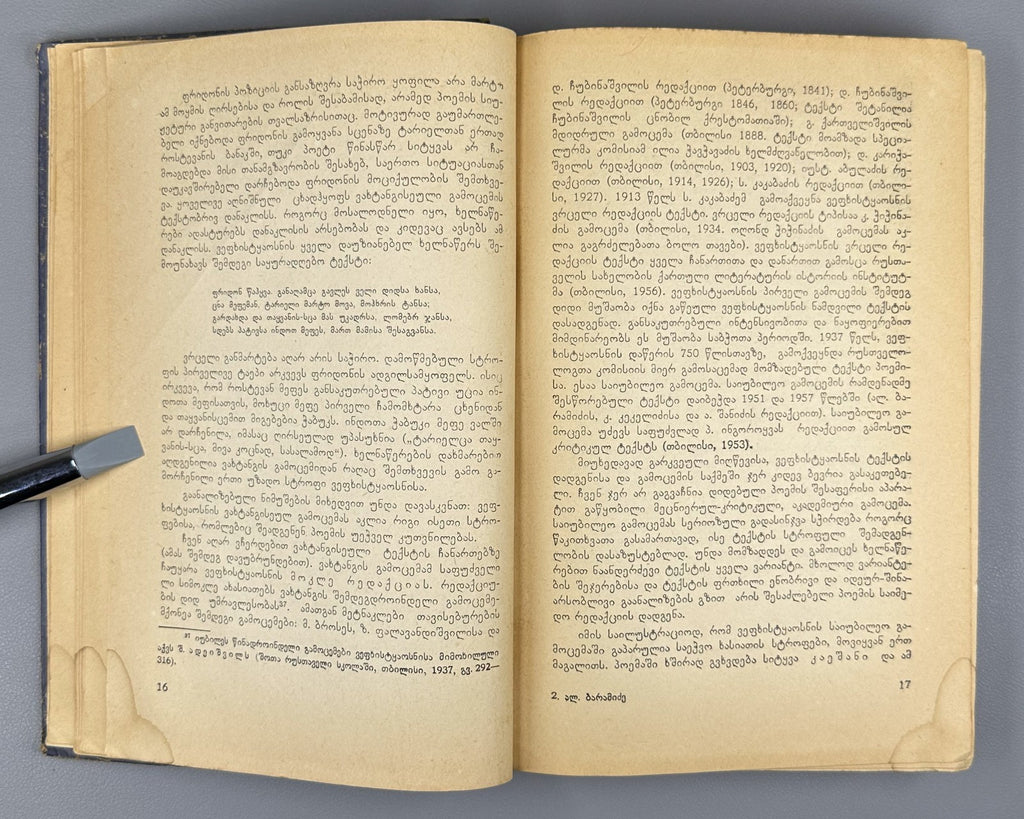 ფრიდონის პოზიციის განსაზღვრა საჭირო ყოფილა არა მარტო
ამ მოყმის ღირსებისა და როლის შესაბამისად, არამედ პოემის სიუ-
ჟეტური განვითარების თვალსაზრისითაც. მოტივურად გაუმართლე-
ბელი იქნებოდა ფრიდონის გამოყვანა სცენაზე ტარიელთან ერთად
როსტევანის ბანაკში, თუკი პოეტი წინასწარ სიტყვას არ ჩა-
მოაგდებდა მისი თანამგზავრობის შესახებ, საერთო სიტუაციასთან
დაუკავშირებელი დარჩებოდა ფრიდონის მოციქულობის შემთხვე-
ვა. ყოველივე აღნიშნული ცხადჰყოფს ვახტანგისეული გამოცემის
ტექსტობრივ დანაკლისს. როგორც მოსალოდნელი იყო, ხელნაწე-
რები ადასტურებს დანაკლისის არსებობას და კიდევაც ავსებს ამ
დანაკლისს. ვეფხისტყაოსნის ყველა დაუზიანებელ ხელნაწერს შე-
მოუნახავს შემდეგი საყურადღებო ტექსტი:
ფრიდონ წაჰყვა. განაღამცა გავლეს ველი დიდსა ხანსა,
ცნა მეფემან. ტარიელი მარტო მოვა, მოჰხრის ტანსა;
გარდახდა და თაყვანის-სცა მას უკადრსა, ლომებრ ჯანსა,
სდებს პატივსა ინდოთ მეფეს, მართ მამისა შესაგვანსა.
ვრცელი განმარტება აღარ არის საჭირო. დამოწმებული სტრო-
ფის პირველივე ტაეპი არკვევს ფრიდონის ადგილსამყოფელს. ისიც
ირკვევა, რომ როსტევან მეფეს განსაკუთრებული პატივი უცია ინ-
დოთა მეფისათვის, მოხუცი მეფე პირველი ჩამომხტარა ცხენიდან
და თაყვანისცემით მიგებებია ჭაბუკს. ინდოთა ჭაბუკი მეფე ვალში
არ დარჩენილა, იმასაც ღირსეულად უპასუხნია („ტარიელცა თაყ-
ვანის-სცა, მივა კოცნად, სასალამოდ“). ხელნაწერების დახმარებით
აღდგენილია ვახტანგის გამოცემიდან რაღაც შემთხვევის გამო გა-
მორჩენილი ერთი უზადო სტროფი ვეფხისტყაოსნისა.
გაანალიზებული ნიმუშების მიხედვით უნდა დავასკვნათ: ვეფ-
ხისტყაოსნის ვახტანგისეულ გამოცემას აკლია რიგი ისეთი სტრო-
ფებისა, რომლებიც შეადგენენ პოემის უეჭველ კუთვნილებას.
ჩვენ აღარ ვჩერდებით ვახტანგისეული ტექსტის ჩანართებზე
(ამას შემდეგ დავუბრუნდებით). ვახტანგის გამოცემამ საფუძველი
ჩაუყარა ვეფხისტყაოსნის მოკლე რედაქციას. რედაქციუ-
ლი სიმოკლე ახასიათებს ვახტანგის შემდეგდროინდელი გამოცემე-
ბის დიდ უმრავლესობას³⁷. ამათგან მეტნაკლები თავისებურების
მქონეა შემდეგი გამოცემები: მ. ბროსეს, ზ. ფალავანდიშვილისა და
³⁷ იუბილეს წინადროინდელი გამოცემები ვეფხისტყაოსნისა მიმოხილული
აქვს შ. ადეიშვილს (შოთა რუსთაველი სკოლაში, თბილისი, 1937, გვ. 292—
316).
16
დ. ჩუბინაშვილის რედაქციით (პეტერბურგი, 1841); დ. ჩუბინაშვი-
ლის რედაქციით (პეტერბურგი 1846, 1860; ტექსტი შეტანილია
ჩუბინაშვილის ცნობილ ქრესტომათიაში); გ. ქართველიშვილის
მდიდრული გამოცემა (თბილისი 1888. ტექსტი მოამზადა სპეცია-
ლურმა კომისიამ ილია ჭავჭავაძის ხელმძღვანელობით); დ. კარიჭა-
შვილის რედაქციით (თბილისი, 1903, 1920); იუსტ. აბულაძის რე-
დაქციით (თბილისი, 1914, 1926); ს. კაკაბაძის რედაქციით (თბილი-
სი, 1927). 1913 წელს ს. კაკაბაძემ გამოაქვეყნა ვეფხისტყაოსნის
ვრცელი რედაქციის ტექსტი. ვრცელი რედაქციის ტიპისაა კ. ჭიჭინა-
ძის გამოცემა (თბილისი, 1934. ოღონდ ჭიჭინაძის გამოცემას აკ-
ლია გაგრძელებათა ბოლო თავები). ვეფხისტყაოსნის ვრცელი რე-
დაქციის ტექსტი ყველა ჩანართითა და დანართით გამოსცა რუსთა-
ველის სახელობის ქართული ლიტერატურის ისტორიის ინსტიტუტ-
მა (თბილისი, 1956). ვეფხისტყაოსნის პირველი გამოცემის შემდეგ
დიდი მუშაობა იქნა გაწეული ვეფხისტყაოსნის ნამდვილი ტექსტის
დასადგენად. განსაკუთრებული ინტენსივობითა და ნაყოფიერებით
მიმდინარეობს ეს მუშაობა საბჭოთა პერიოდში. 1937 წელს, ვეფ-
ხისტყაოსნის დაწერის 750 წლისთავზე, გამოქვეყნდა რუსთველო-
ლოგთა კომისიის მიერ გამოსაცემად მომზადებული ტექსტი პოემი-
სა. ესაა საიუბილეო გამოცემა. საიუბილეო გამოცემის რამდენადმე
შესწორებული ტექსტი დაიბეჭდა 1951 და 1957 წლებში (ალ. ბა-
რამიძის, კ. კეკელიძისა და ა. შანიძის რედაქციით). საიუბილეო გა-
მოცემა უძევს საფუძვლად პ. ინგოროყვას რედაქციით გამოსულ
კრიტიკულ ტექსტს (თბილისი, 1953).
მიუხედავად გარკვეული მიღწევისა, ვეფხისტყაოსნის ტექსტის
დადგენისა და გამოცემის საქმეში ჯერ კიდევ ბევრია გასაკეთებე-
ლი. ჩვენ ჯერ არ გაგვაჩნია დიდებული პოემის შესაფერისი აპარა-
ტით გაწყობილი მეცნიერულ-კრიტიკული, აკადემიური გამოცემა.
საიუბილეო გამოცემას სერიოზული გადასინჯვა სჭირდება როგორც
წაკითხვათა გასამართავად, ისე ტექსტის სტროფული შემადგენ-
ლობის დასაზუსტებლად. უნდა მომზადდეს და გამოიცეს ხელნაწე-
რებით ნაანდერძევი ტექსტის ყველა ვარიანტი. მხოლოდ ვარიანტე-
ბის შეჯერებისა და ტექსტის ფრთხილი ენობრივი და იდეურ-შინა-
არსობლივი გაანალიზების გზით არის შესაძლებელი პოემის საიმე-
დო რედაქციის დადგენა.
იმის საილუსტრაციოდ, რომ ვეფხისტყაოსნის საიუბილეო გა-
მოცემაში გაპარულია საეჭვო ხასიათის სტროფები, მოვიყვან ერთ
მაგალითს. პოემაში ხშირად გვხვდება სიტყვა კაეშანი და ამ
2. ალ. ბარამიძე
17